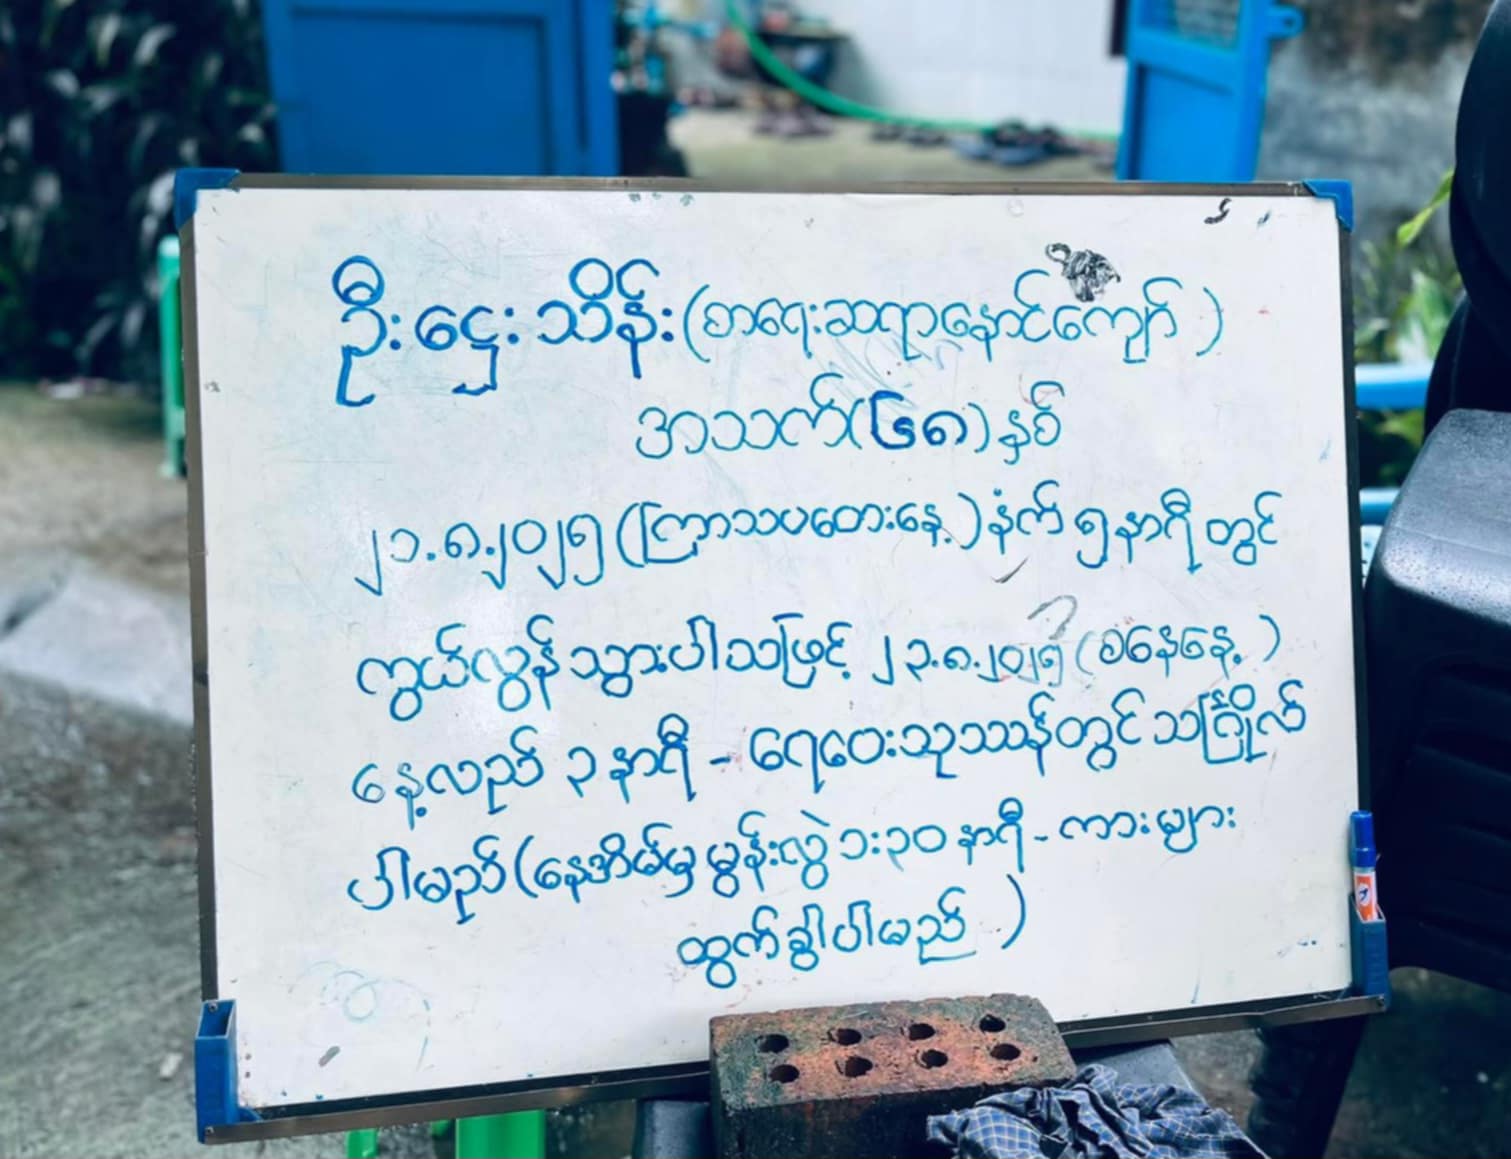 ဦးဌေးသိန်း(စာရေးဆရာနောင်ကျော်)
အသက်(၆၈)နှစ်
၂၁.၈.၂၀၂၅(ကြာသပတေးနေ့)နံက် ၅နာရီ တွင်
ကွယ်လွန်သွားပါသဖြင့် ၂၃.၈.၂၀၂၅(စနေနေ့)
နေ့လည် ၃နာရီ - ရေဝေးသုဿန်တွင် သင်္ဂြိုလ်
ပါမည်(နေအိမ်မှ မွန်းလွဲ ၁း၃၀ နာရီ - ကားများ
ထွက်ခွါပါမည်)